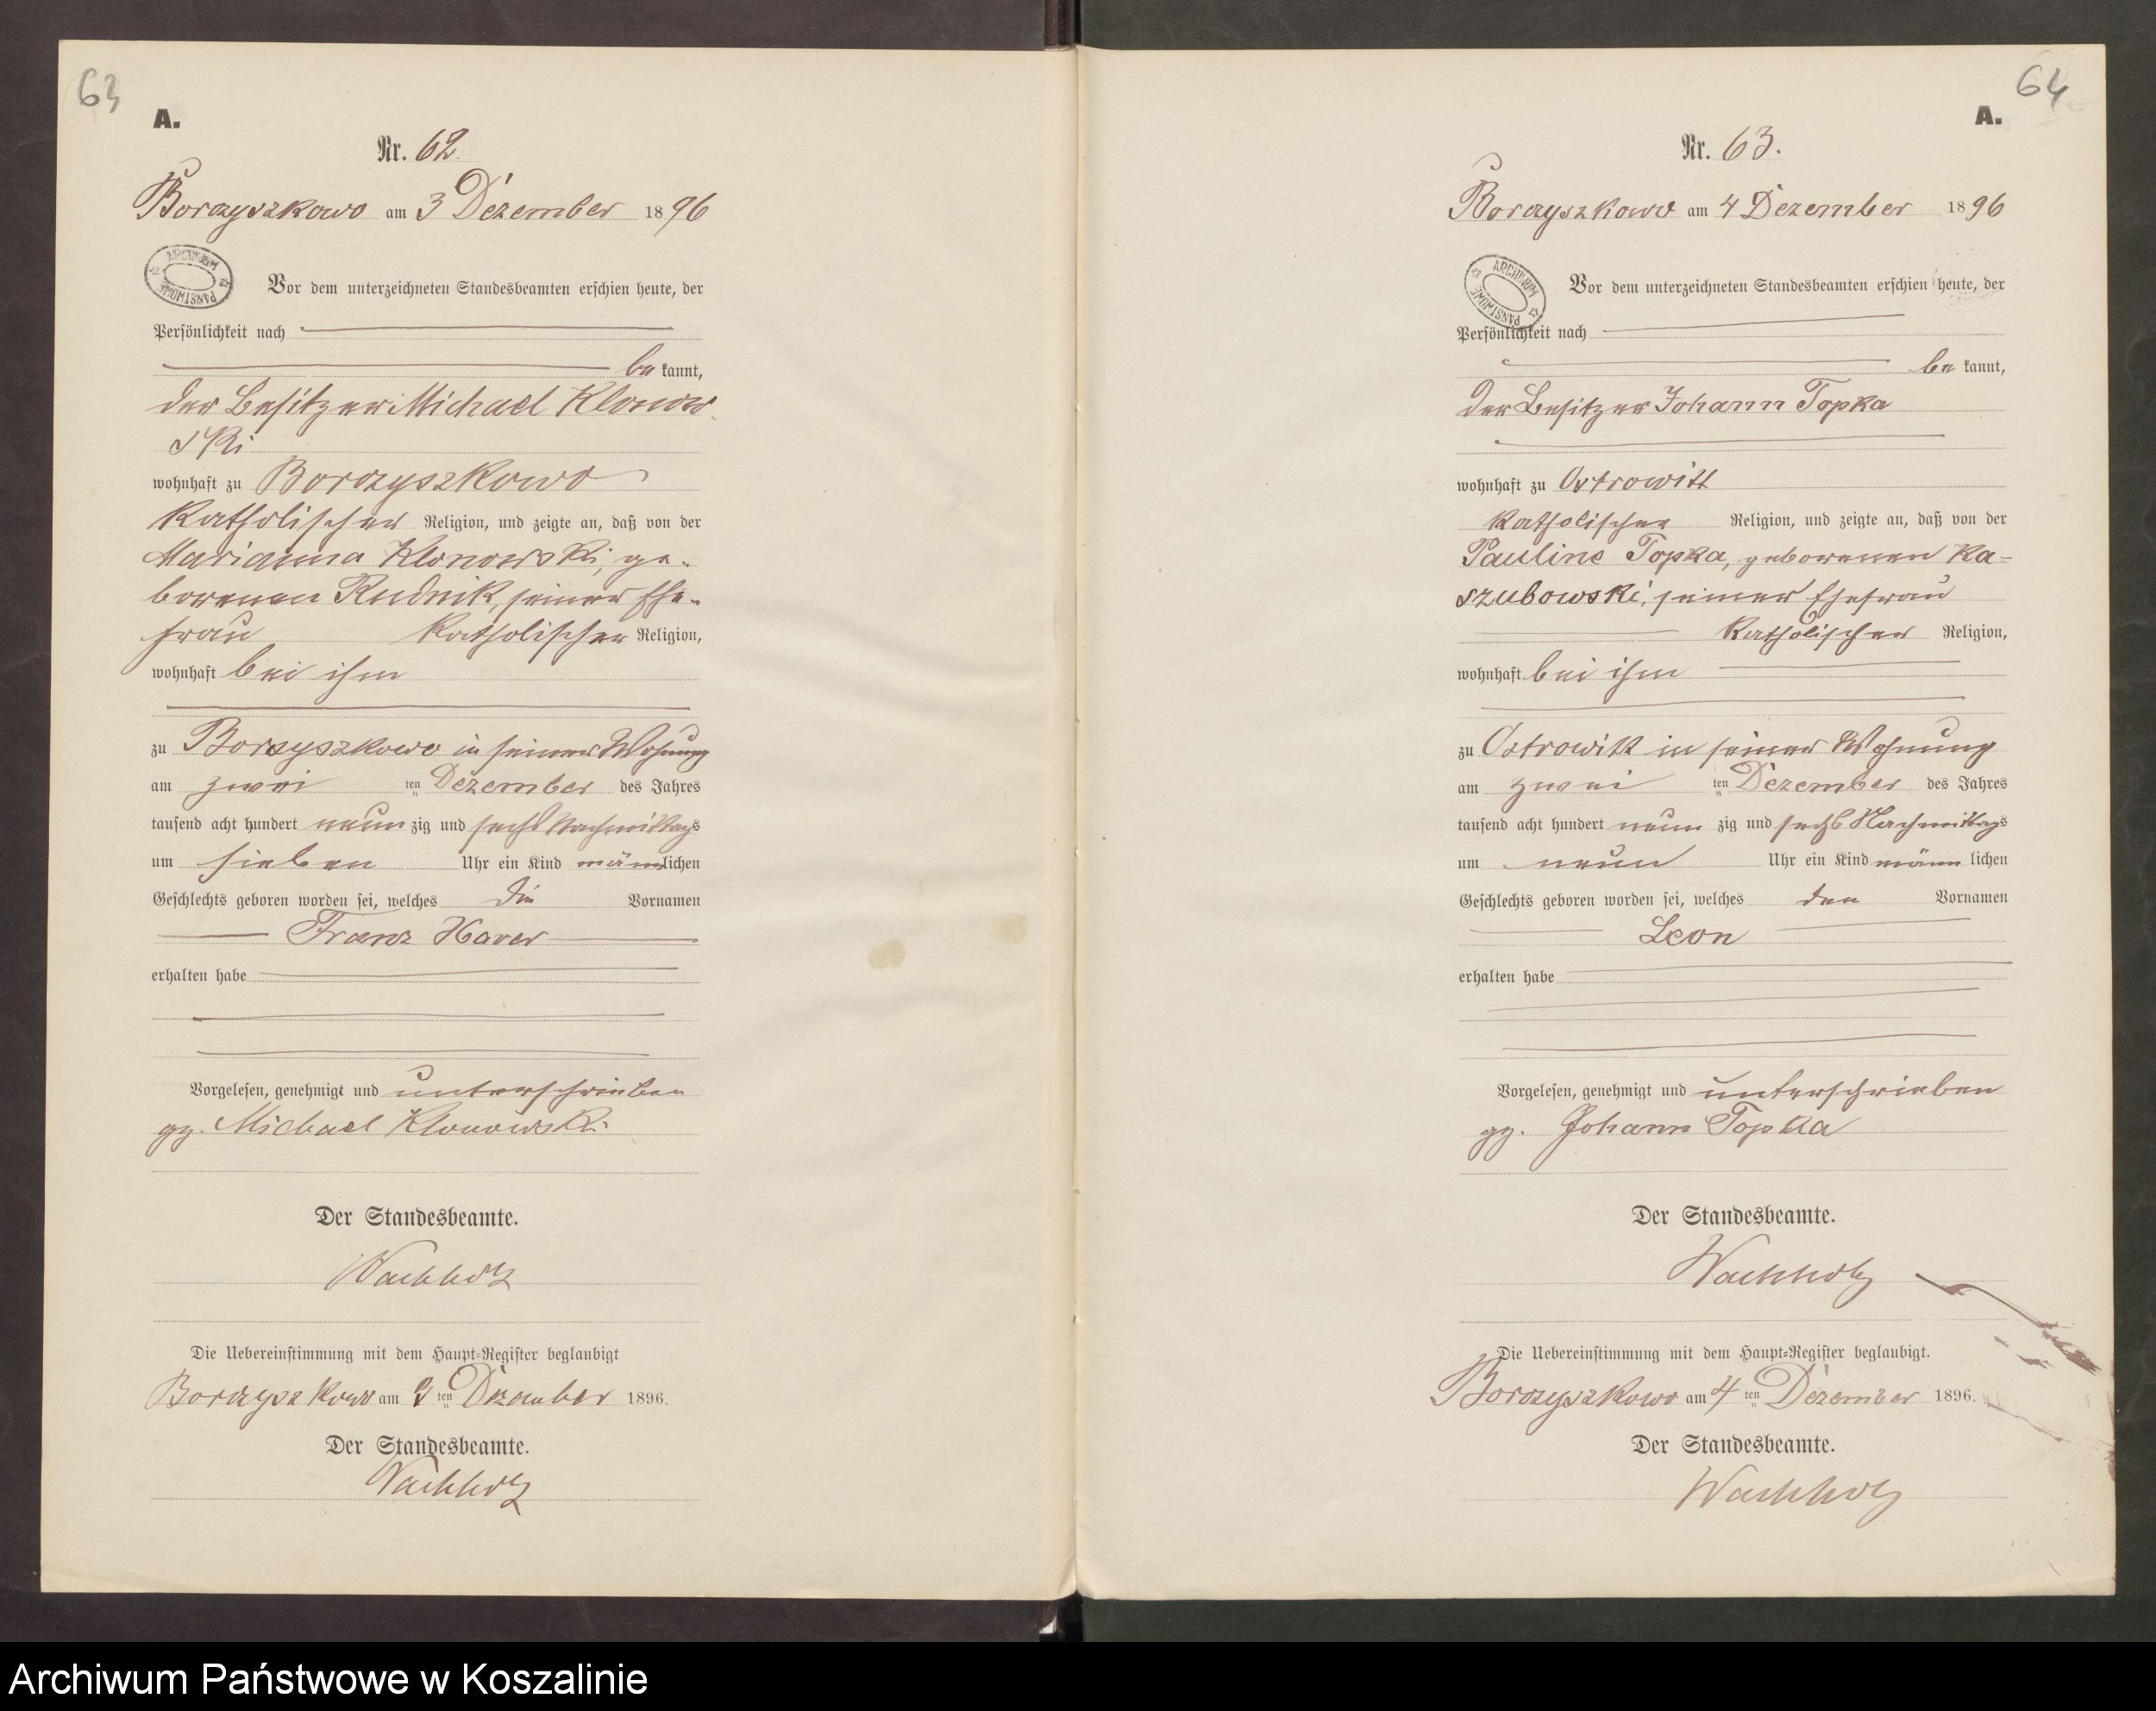 63
A.
Nr. 62.
Borzyszkowo am 3 Dezember 1896
ARCHIWUM PAŃSTWOWE
Vor dem unterzeichneten Standesbeamten erschien heute, der
Persönlichkeit nach
be kannt,
der Besitzer Michael Klonow-
ski
wohnhaft zu Borzyszkowo
katholischer Religion, und zeigte an, daß von der
Marianna Klonowski, ge-
borenen Rudnik, seiner Ehe-
frau katholischer Religion,
wohnhaft bei ihm
zu Borzyszkowo in seiner Wohnung
am zwei ten Dezember des Jahres
tausend acht hundert neun zig und sechs Nachmittags
um sieben Uhr ein Kind männlichen
Geschlechts geboren worden sei, welches die Vornamen
Franz Xaver
erhalten habe
Vorgelesen, genehmigt und unterschrieben
gz. Michael Klonowski
Der Standesbeamte.
Wachholz
Die Uebereinstimmung mit dem Haupt-Register beglaubigt
Borzyszkowo am 3 ten Dezember 1896.
Der Standesbeamte.
Wachholz
64
A.
Nr. 63.
Borzyszkowo am 4 Dezember 1896
ARCHIWUM PAŃSTWOWE
Vor dem unterzeichneten Standesbeamten erschien heute, der
Persönlichkeit nach
be kannt,
der Besitzer Johann Topka
wohnhaft zu Ostrowitt
katholischer Religion, und zeigte an, daß von der
Pauline Topka, geborenen Ka-
szubowski, seiner Ehefrau
katholischer Religion,
wohnhaft bei ihm
zu Ostrowitt in seiner Wohnung
am zwei ten Dezember des Jahres
tausend acht hundert neun zig und sechs Nachmittags
um neun Uhr ein Kind männ lichen
Geschlechts geboren worden sei, welches den Vornamen
Leon
erhalten habe
Vorgelesen, genehmigt und unterschrieben
gz. Johann Topka
Der Standesbeamte.
Wachholz
Die Uebereinstimmung mit dem Haupt-Register beglaubigt.
Borzyszkowo am 4 ten Dezember 1896.
Der Standesbeamte.
Wachholz
Archiwum Państwowe w Koszalinie